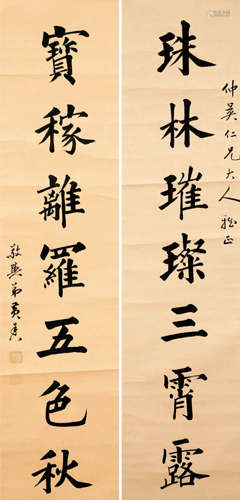 仲吳仁兄大人雅正
珠林璀璨三霄露
寶稼離羅五色秋
弟黃